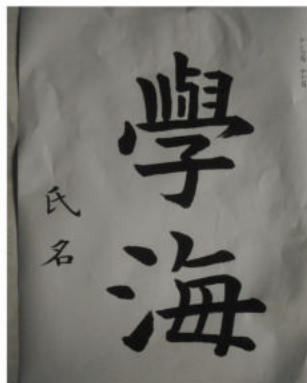 學海
氏名